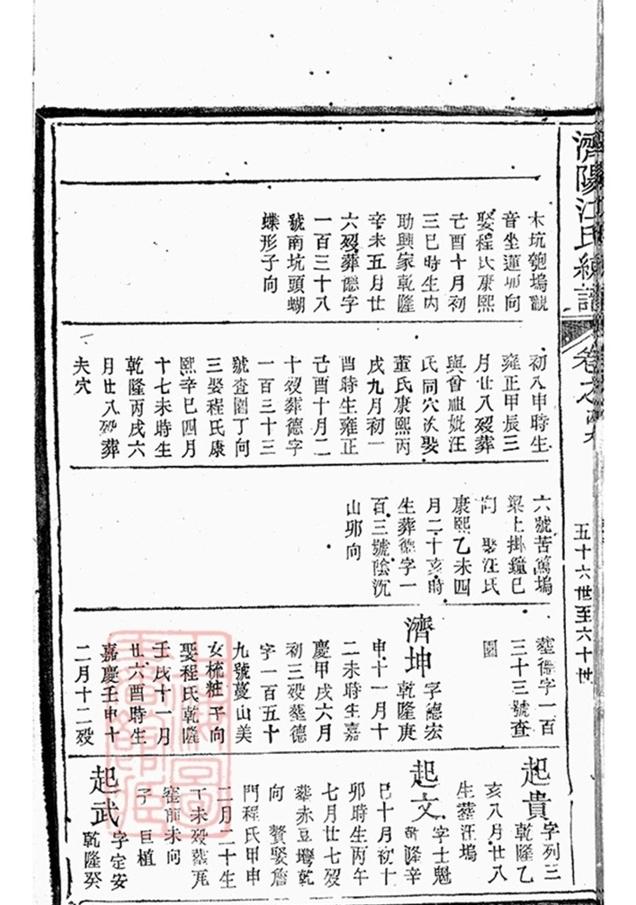 濟陽江氏統譜
卷之
五十六世至六十世
木坑匏塢觀
音坐蓮卯向
娶程氏康熙
己酉十月初
三巳時生内
助興家乾隆
辛未五月廿
六歿葬德字
一百三十八
號南坑頭蝴
蝶形子向
初八申時生
雍正甲辰三
月廿八歿葬
與曾祖妣汪
氏同穴次娶
董氏康熙丙
戌九月初一
酉時生雍正
己酉十月二
十歿葬德字
一百三十三
號查園丁向
三娶程氏康
熙辛巳四月
十七未時生
乾隆丙戌六
月廿八歿葬
夫穴
六號苦蔦塢
梁上掛鐘巳
向 娶汪氏
康熙乙未四
月二十亥時
生葬德字一
百三號陰沉
山卯向
葬德字一百
三十三號查
園
濟坤 字德宏
乾隆庚
申十一月十
二未時生嘉
慶甲戌六月
初三歿葬德
字一百五十
九號蔓山美
女梳粧平向
娶程氏乾隆
壬戌十一月
廿六酉時生
嘉慶壬申十
二月十二歿
起貴 字列三
乾隆乙
亥八月廿八
生葬汪塢
起文 字士魁
乾隆辛
巳十月初十
卯時生丙午
七月廿七歿
葬赤豆塆乾
向 贅娶詹
門程氏甲申
二月二十生
丁未歿葬瓦
窑前未向
子 巨植
起武 字定安
乾隆癸